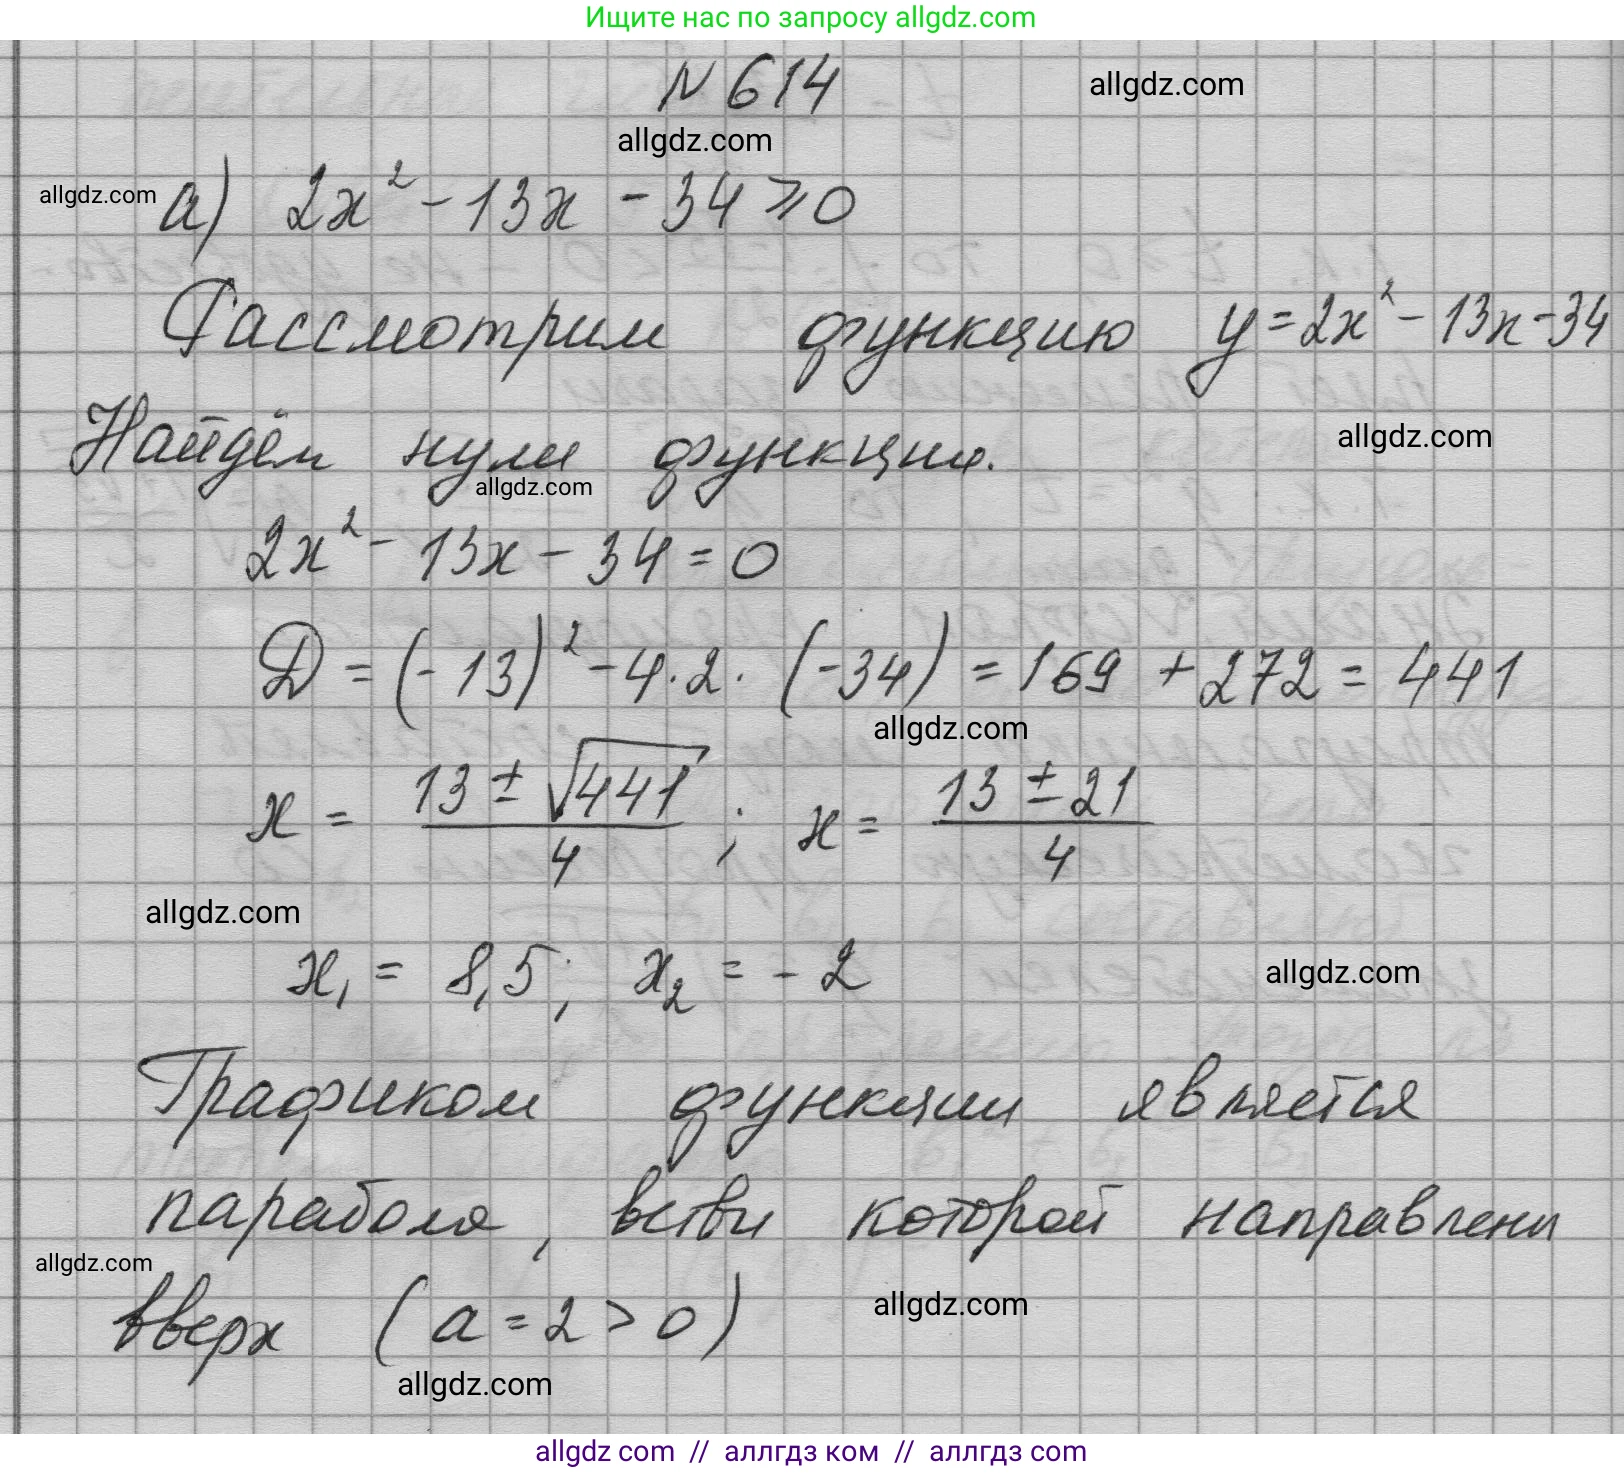 Ищите нас по запросу allgdz.com
N 614
allgdz.com
allgdz.com
allgdz.com
а) 2x² - 13x - 34 ⩾ 0
Рассмотрим функцию y = 2x² - 13x - 34
Найдём нули функции.
allgdz.com
allgdz.com
2x² - 13x - 34 = 0
D = (-13)² - 4·2·(-34) = 169 + 272 = 441
allgdz.com
x = (13 ± √441)/4 ; x = (13 ± 21)/4
allgdz.com
x₁ = 8,5; x₂ = -2
allgdz.com
Графиком функции является
парабола, ветви которой направлены
allgdz.com
вверх (a = 2 > 0)
allgdz.com
allgdz.com
allgdz com // аллгдз ком // аллгдз.com